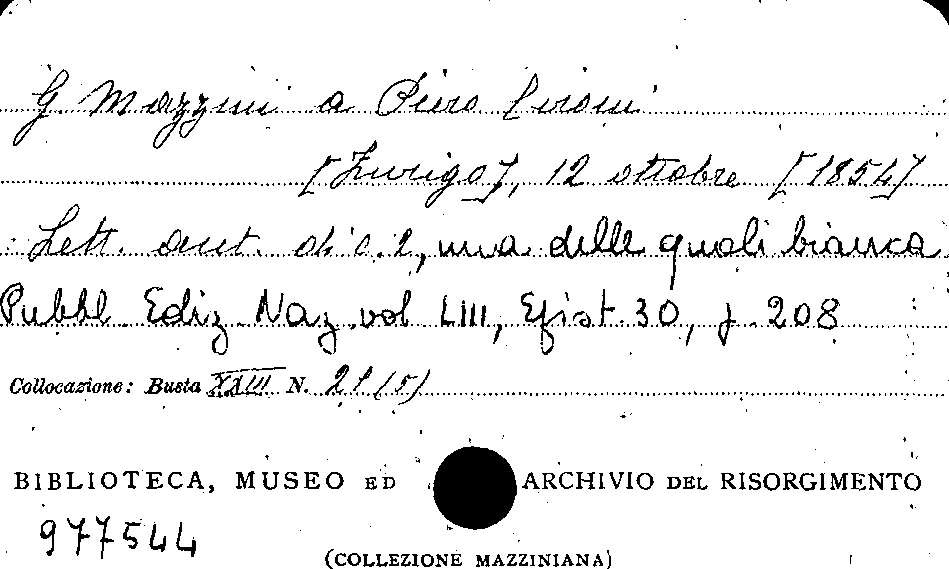 G. Mazzini a Piero Cironi
[Zurigo], 12 ottobre [1854]
Lett. aut. di c. 2, una delle quali bianca
Pubbl. Ediz. Naz. vol LIII, Epist. 30, p. 208
Collocazione: Busta XXIII N. 21 (5)
BIBLIOTECA, MUSEO ED ARCHIVIO DEL RISORGIMENTO
977544
(COLLEZIONE MAZZINIANA)